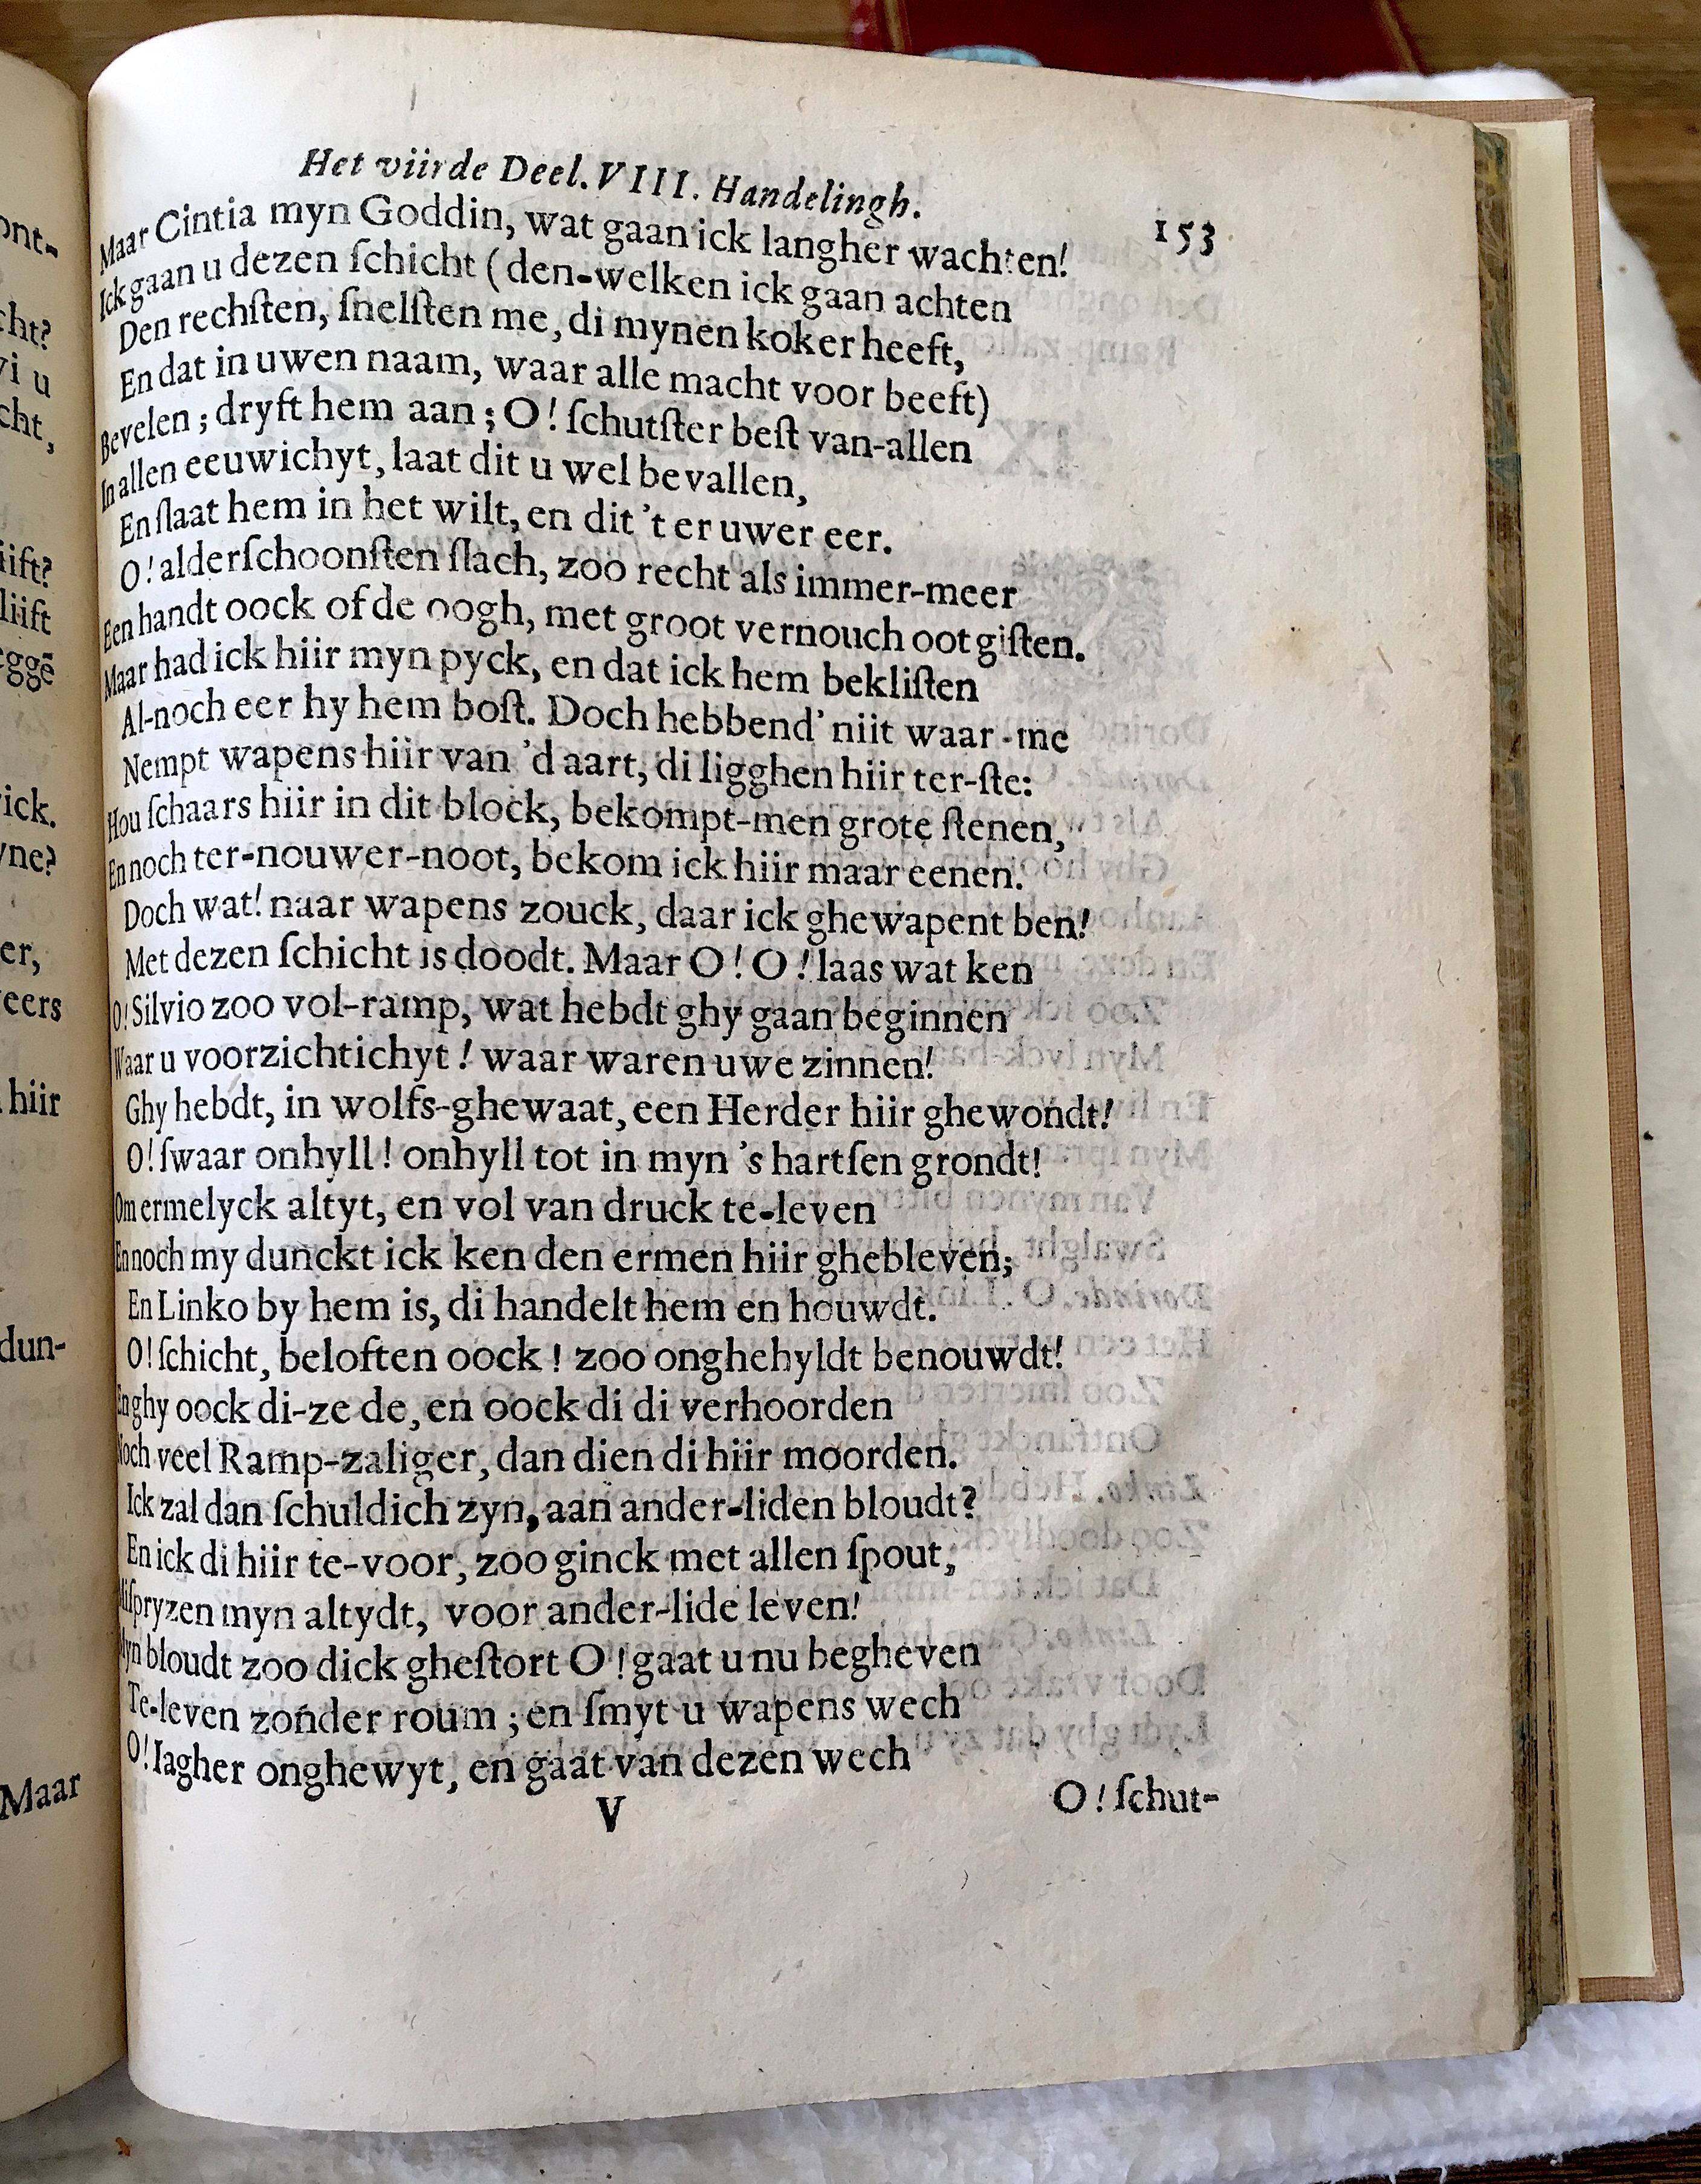 Het viirde Deel. VIII. Handelingh.
153
Maar Cintia myn Goddin, wat gaan ick langher wachten!
Ick gaan u dezen ſchicht (den-welken ick gaan achten
Den rechſten, ſnelſten me, di mynen koker heeft,
En dat in uwen naam, waar alle macht voor beeft)
Bevelen; dryft hem aan; O! ſchutſter beſt van-allen
In allen eeuwichyt, laat dit u wel bevallen,
En ſlaat hem in het wilt, en dit 't er uwer eer.
O! alderſchoonſten ſlach, zoo recht als immer-meer
Een handt oock of de oogh, met groot vernouch oot giſten.
Maar had ick hiir myn pyck, en dat ick hem bekliſten
Al-noch eer hy hem boſt. Doch hebbend' niit waar-me
Nempt wapens hiir van 'd aart, di ligghen hiir ter-ſte:
Hou ſchaars hiir in dit block, bekompt-men grote ſtenen,
En noch ter-nouwer-noot, bekom ick hiir maar eenen.
Doch wat! naar wapens zouck, daar ick ghewapent ben!
Met dezen ſchicht is doodt. Maar O! O! laas wat ken
O! Silvio zoo vol-ramp, wat hebdt ghy gaan beginnen
Waar u voorzichtichyt! waar waren uwe zinnen!
Ghy hebdt, in wolfs-ghewaat, een Herder hiir ghewondt!
O! ſwaar onhyll! onhyll tot in myn 's hartſen grondt!
Om ermelyck altyt, en vol van druck te-leven
En noch my dunckt ick ken den ermen hiir ghebleven;
En Linko by hem is, di handelt hem en houwdt.
O! ſchicht, beloften oock! zoo onghehyldt benouwdt!
En ghy oock di-ze de, en oock di di verhoorden
Noch veel Ramp-zaliger, dan dien di hiir moorden.
Ick zal dan ſchuldich zyn, aan ander-liden bloudt?
En ick di hiir te-voor, zoo ginck met allen ſpout,
Miſpryzen myn altydt, voor ander-lide leven!
Myn bloudt zoo dick gheſtort O! gaat u nu begheven
Te-leven zonder roum; en ſmyt u wapens wech
O! Iagher onghewyt, en gaat van dezen wech
V
O! ſchut-
ont-
cht?
vi u
cht,
iift?
liift
eggē
ick.
yne?
er,
veers
hiir
dun-
Maar